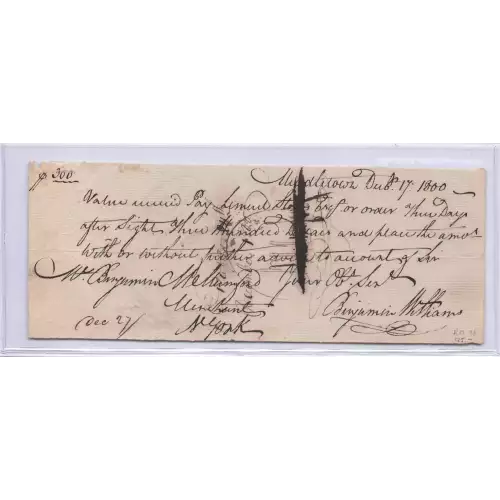 $ 300
Middletown Decr 17 1800
Value received Pay Lemuel Esqr or order Three Days
after Sight Three Hundred Dollars and place the amot
with or without further advice to account of Sir
Mr. Benjamin Your Ob. Sert
Merchant Benjamin Williams
N York
Dec 27/